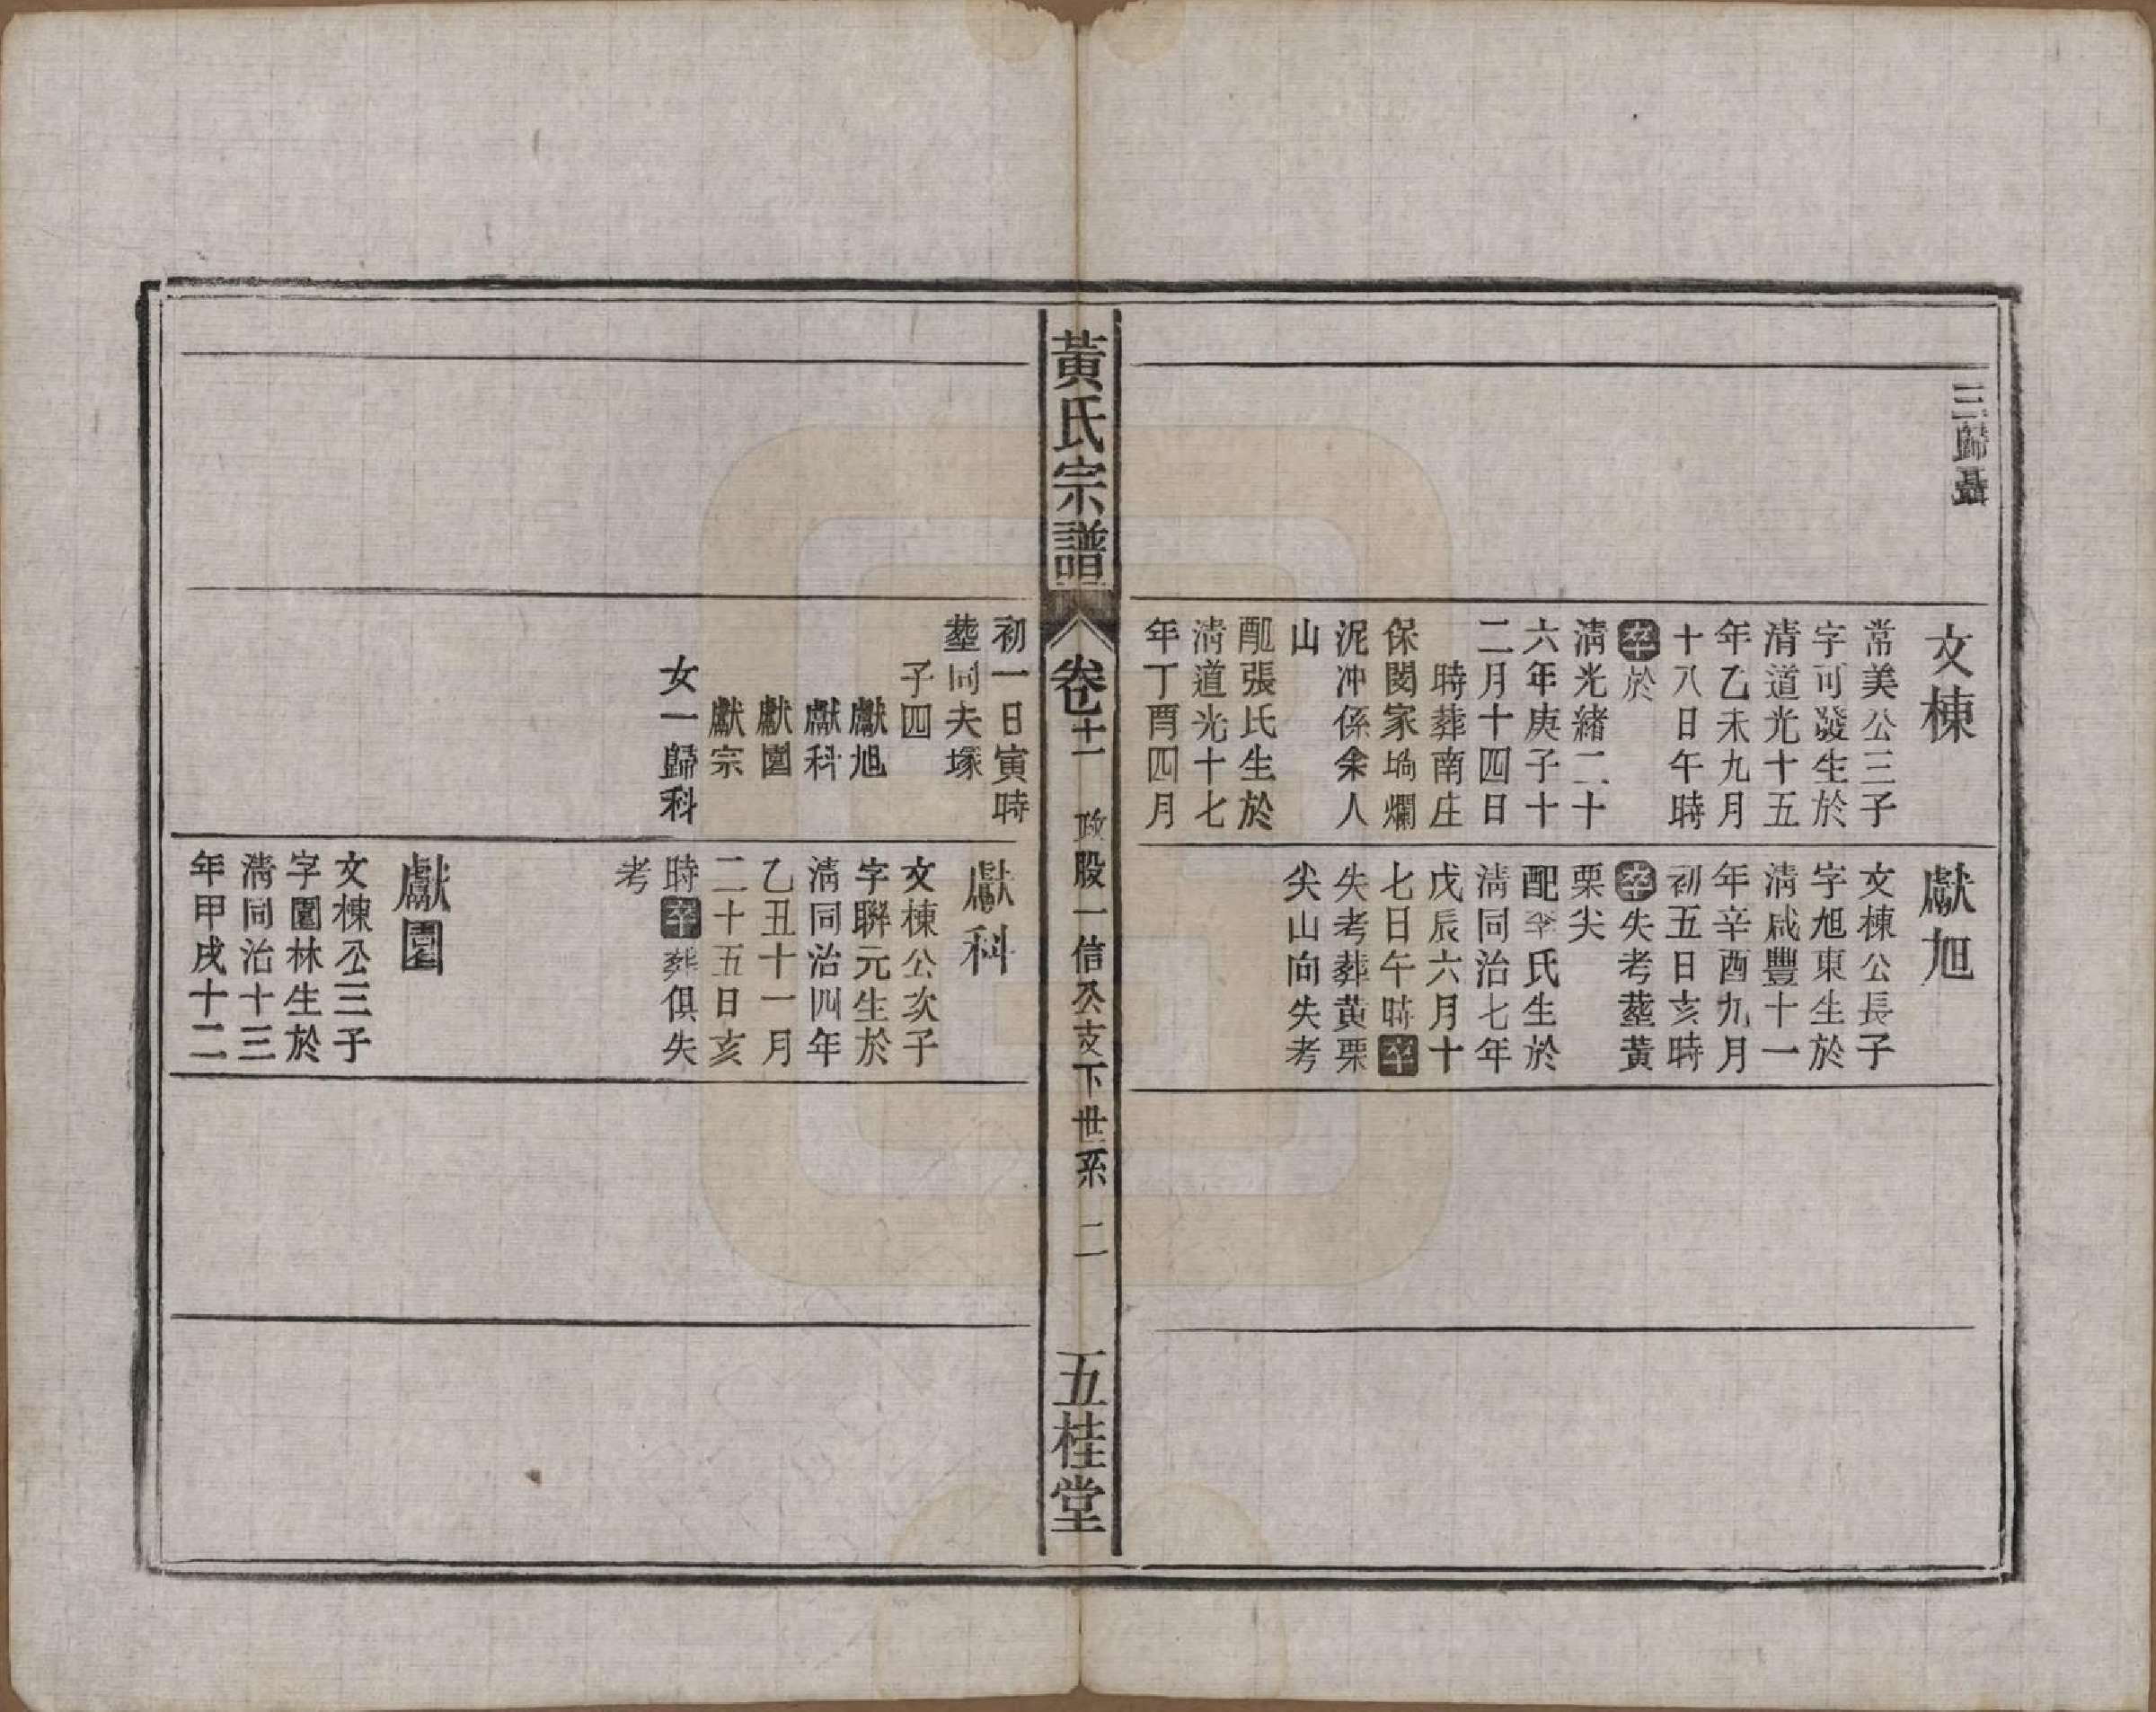 三歸聶
文棟
常美公三子
字可發生於
清道光十五
年乙未九月
十八日午時
卒於
清光緒二十
六年庚子十
二月十四日
時葬南庄
保閔家塆爛
泥冲係余人
山
配張氏生於
清道光十七
年丁酉四月
獻旭
文棟公長子
字旭東生於
清咸豐十一
年辛酉九月
初五日亥時
卒失考塟黃
栗尖
配李氏生於
清同治七年
戊辰六月十
七日午時卒
失考葬黄栗
尖山向失考
黃氏宗譜
卷十一
政股一信公支下世系
二
五桂堂
初一日寅時
塟同夫塚
子四
獻旭
獻科
獻園
獻宗
女一歸科
獻科
文棟公次子
字聯元生於
清同治四年
乙丑十一月
二十五日亥
時卒葬俱失
考
獻園
文棟公三子
字園林生於
清同治十三
年甲戌十二